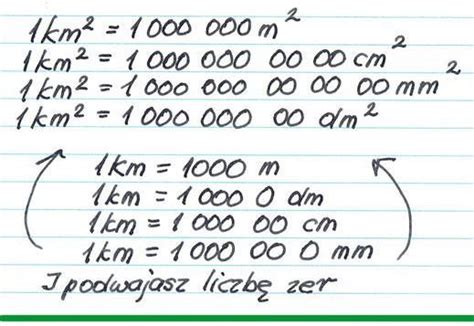 1km² = 1 000 000 m²
1km² = 1 000 000 00 00 cm²
1km² = 1 000 000 00 00 00 mm²
1km² = 1 000 000 00 dm²
1km = 1000 m
1km = 1 000 0 dm
1km = 1 000 00 cm
1km = 1 000 00 0 mm
I podwajasz liczbę zer